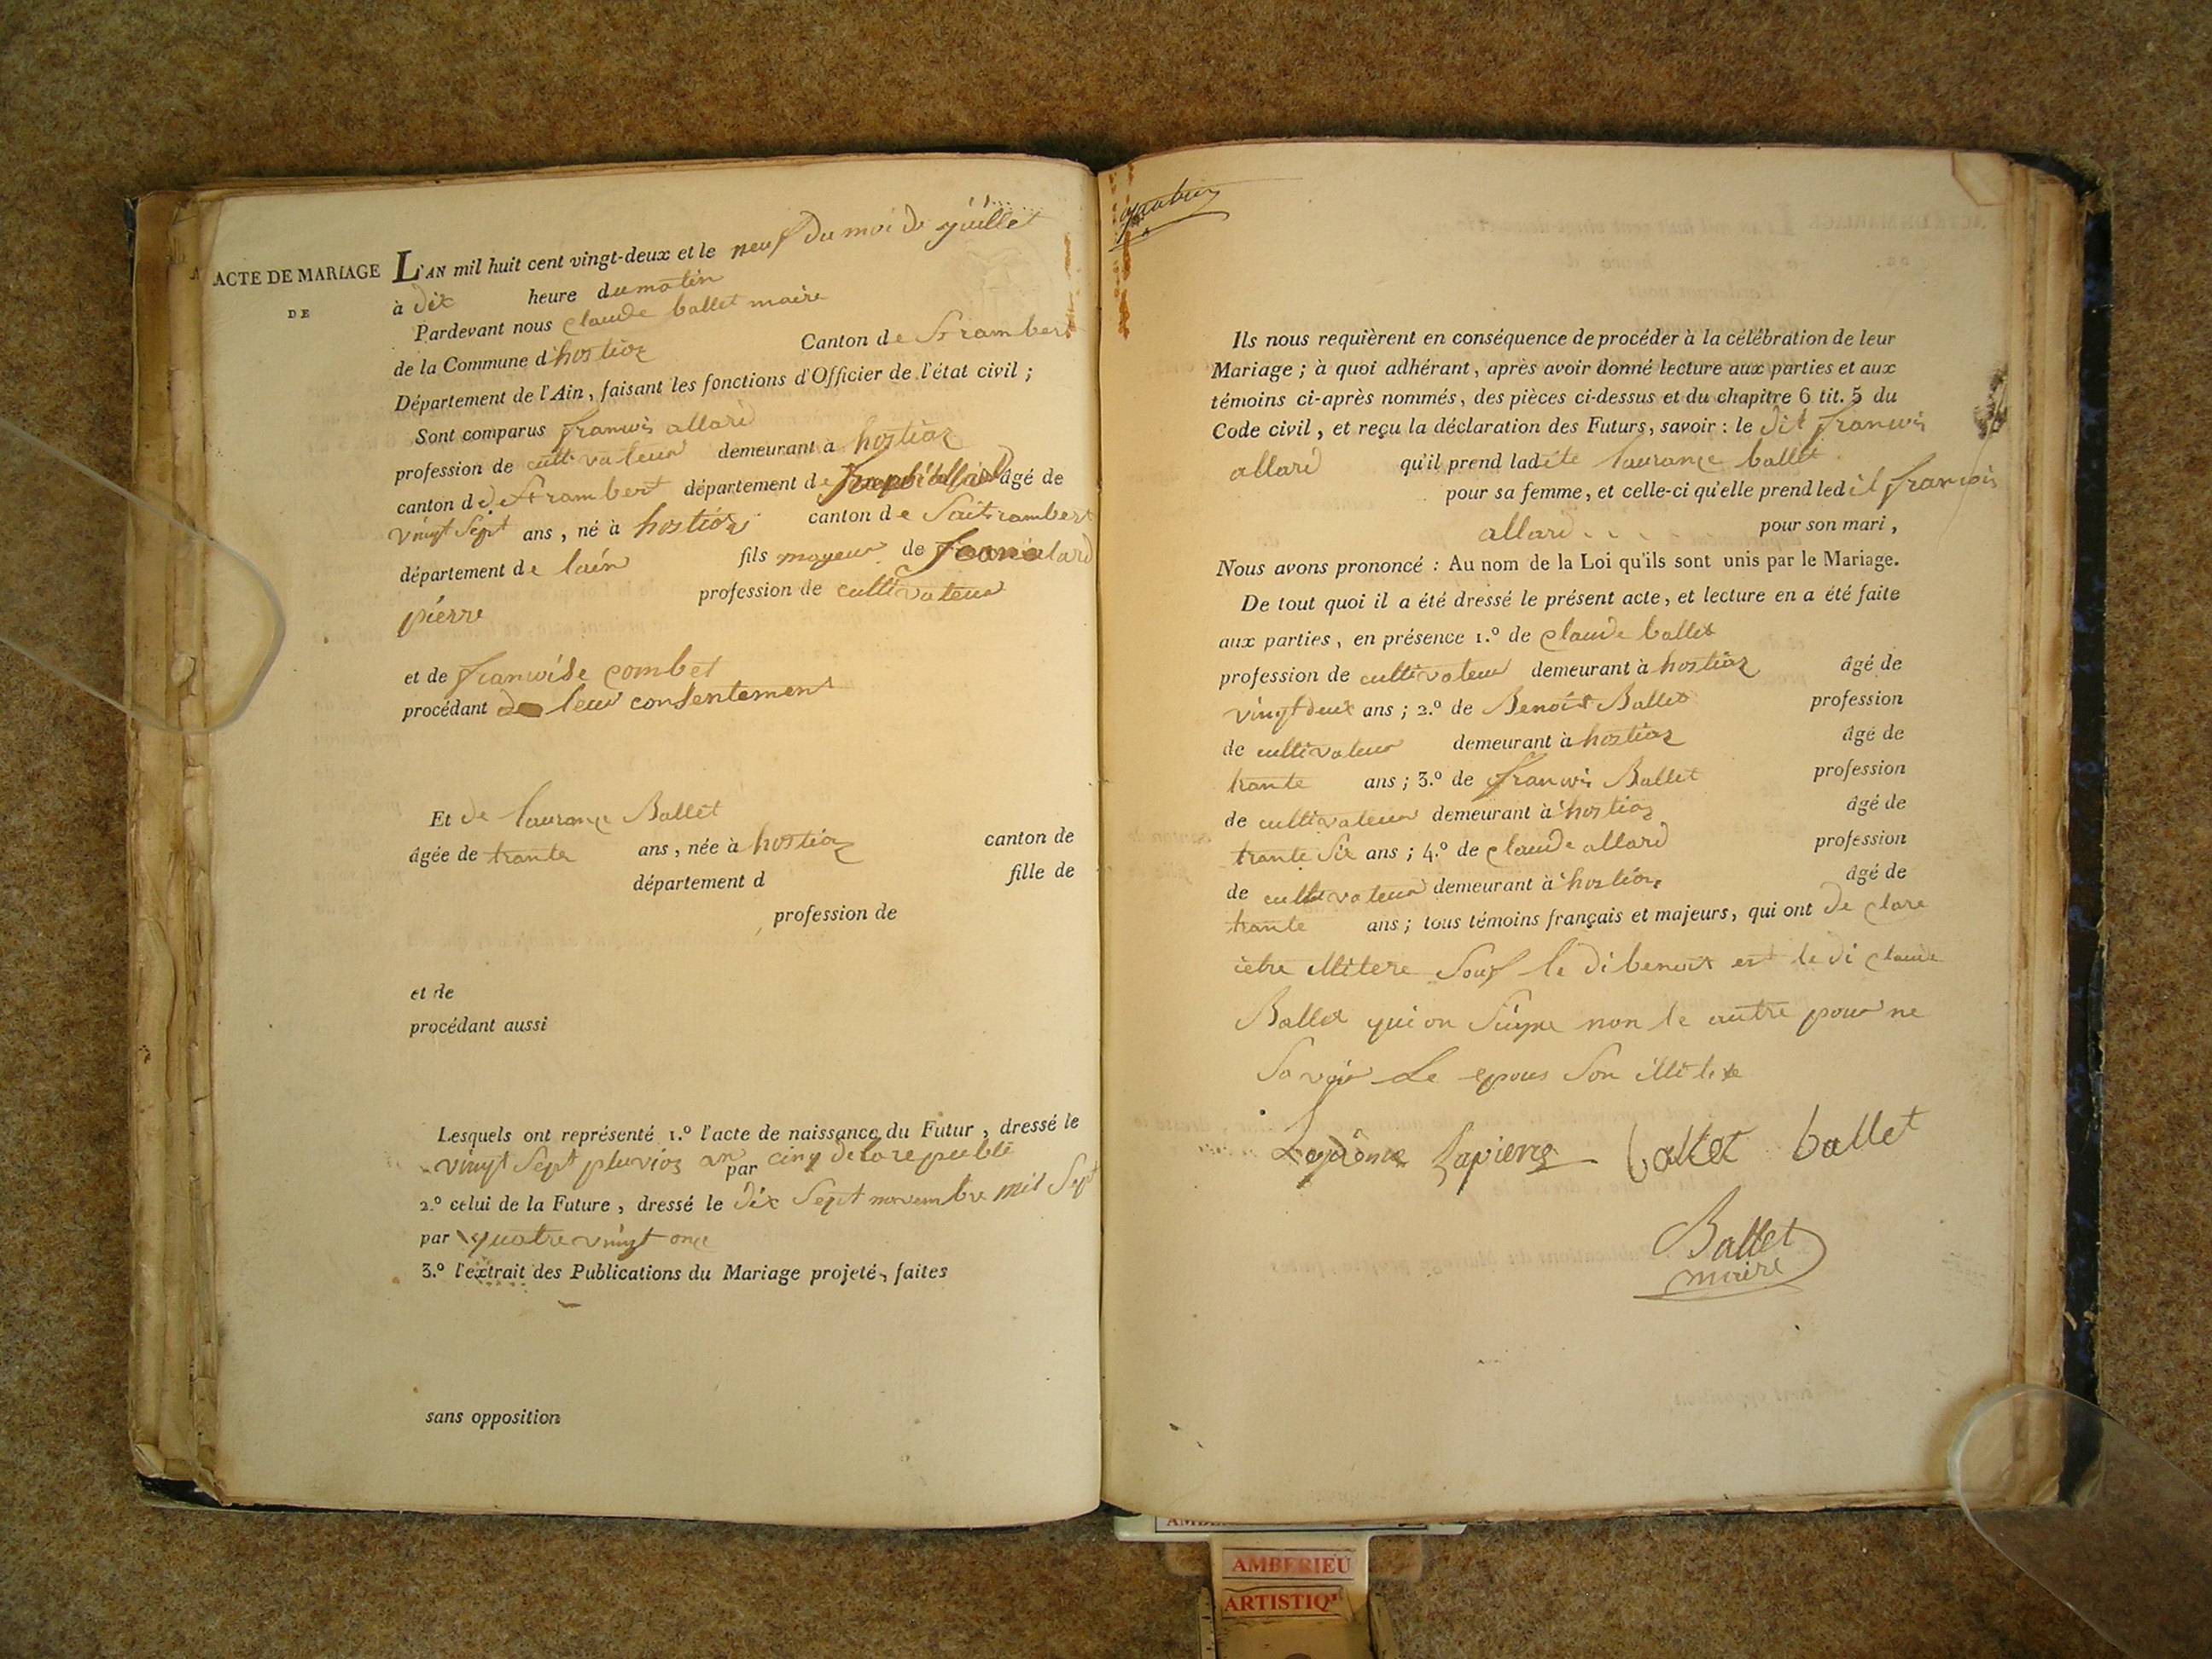 ACTE DE MARIAGE
DE
L'AN mil huit cent vingt-deux et le neuf du moi de juillet
à dix heure du matin
Pardevant nous claude ballet maire
de la Commune d'hostiaz Canton de St rambert
Département de l'Ain, faisant les fonctions d'Officier de l'état civil ;
Sont comparus francois allard
profession de cultivateur demeurant à hostiaz
canton d de St rambert département de âgé de
vingt sept ans, né à hostiaz canton de Saitrambert
département de lain fils mayeur de
pierre profession de cultivateur
et de francoise combet
procédant de leur consentement
Et de laurance Ballet
âgée de trante ans, née à hostiaz canton de
département d fille de
profession de
et de
procédant aussi
Lesquels ont représenté 1.º l'acte de naissance du Futur, dressé le
vingt sept pluvioz an cinq de la republi
par
2.º celui de la Future, dressé le dix sept novembre mil sept
par quatre vingt onze
3.º l'extrait des Publications du Mariage projeté, faites
sans opposition
Ils nous requièrent en conséquence de procéder à la célébration de leur
Mariage ; à quoi adhérant, après avoir donné lecture aux parties et aux
témoins ci-après nommés, des pièces ci-dessus et du chapitre 6 tit. 5 du
Code civil, et reçu la déclaration des Futurs, savoir : le dit francois
allard qu'il prend ladite laurance ballet
pour sa femme, et celle-ci qu'elle prend ledit francois
allard pour son mari,
Nous avons prononcé : Au nom de la Loi qu'ils sont unis par le Mariage.
De tout quoi il a été dressé le présent acte, et lecture en a été faite
aux parties, en présence 1.º de claude ballet
profession de cultivateur demeurant à hostiaz âgé de
vingt deux ans ; 2.º de Benoit Ballet profession
de cultivateur demeurant à hostiaz âgé de
trante ans ; 3.º de francois Ballet profession
de cultivateur demeurant à hostiaz âgé de
trante six ans ; 4.º de claude allard profession
de cultivateur demeurant à hostiaz âgé de
trante ans ; tous témoins français et majeurs, qui ont de clare
ietre illitere souf le di benoit est le di claude
Ballet qui on signe non le autre pour ne
savoir le epous son illitere
lapierre ballet ballet
Ballet
maire
AMBERIEU